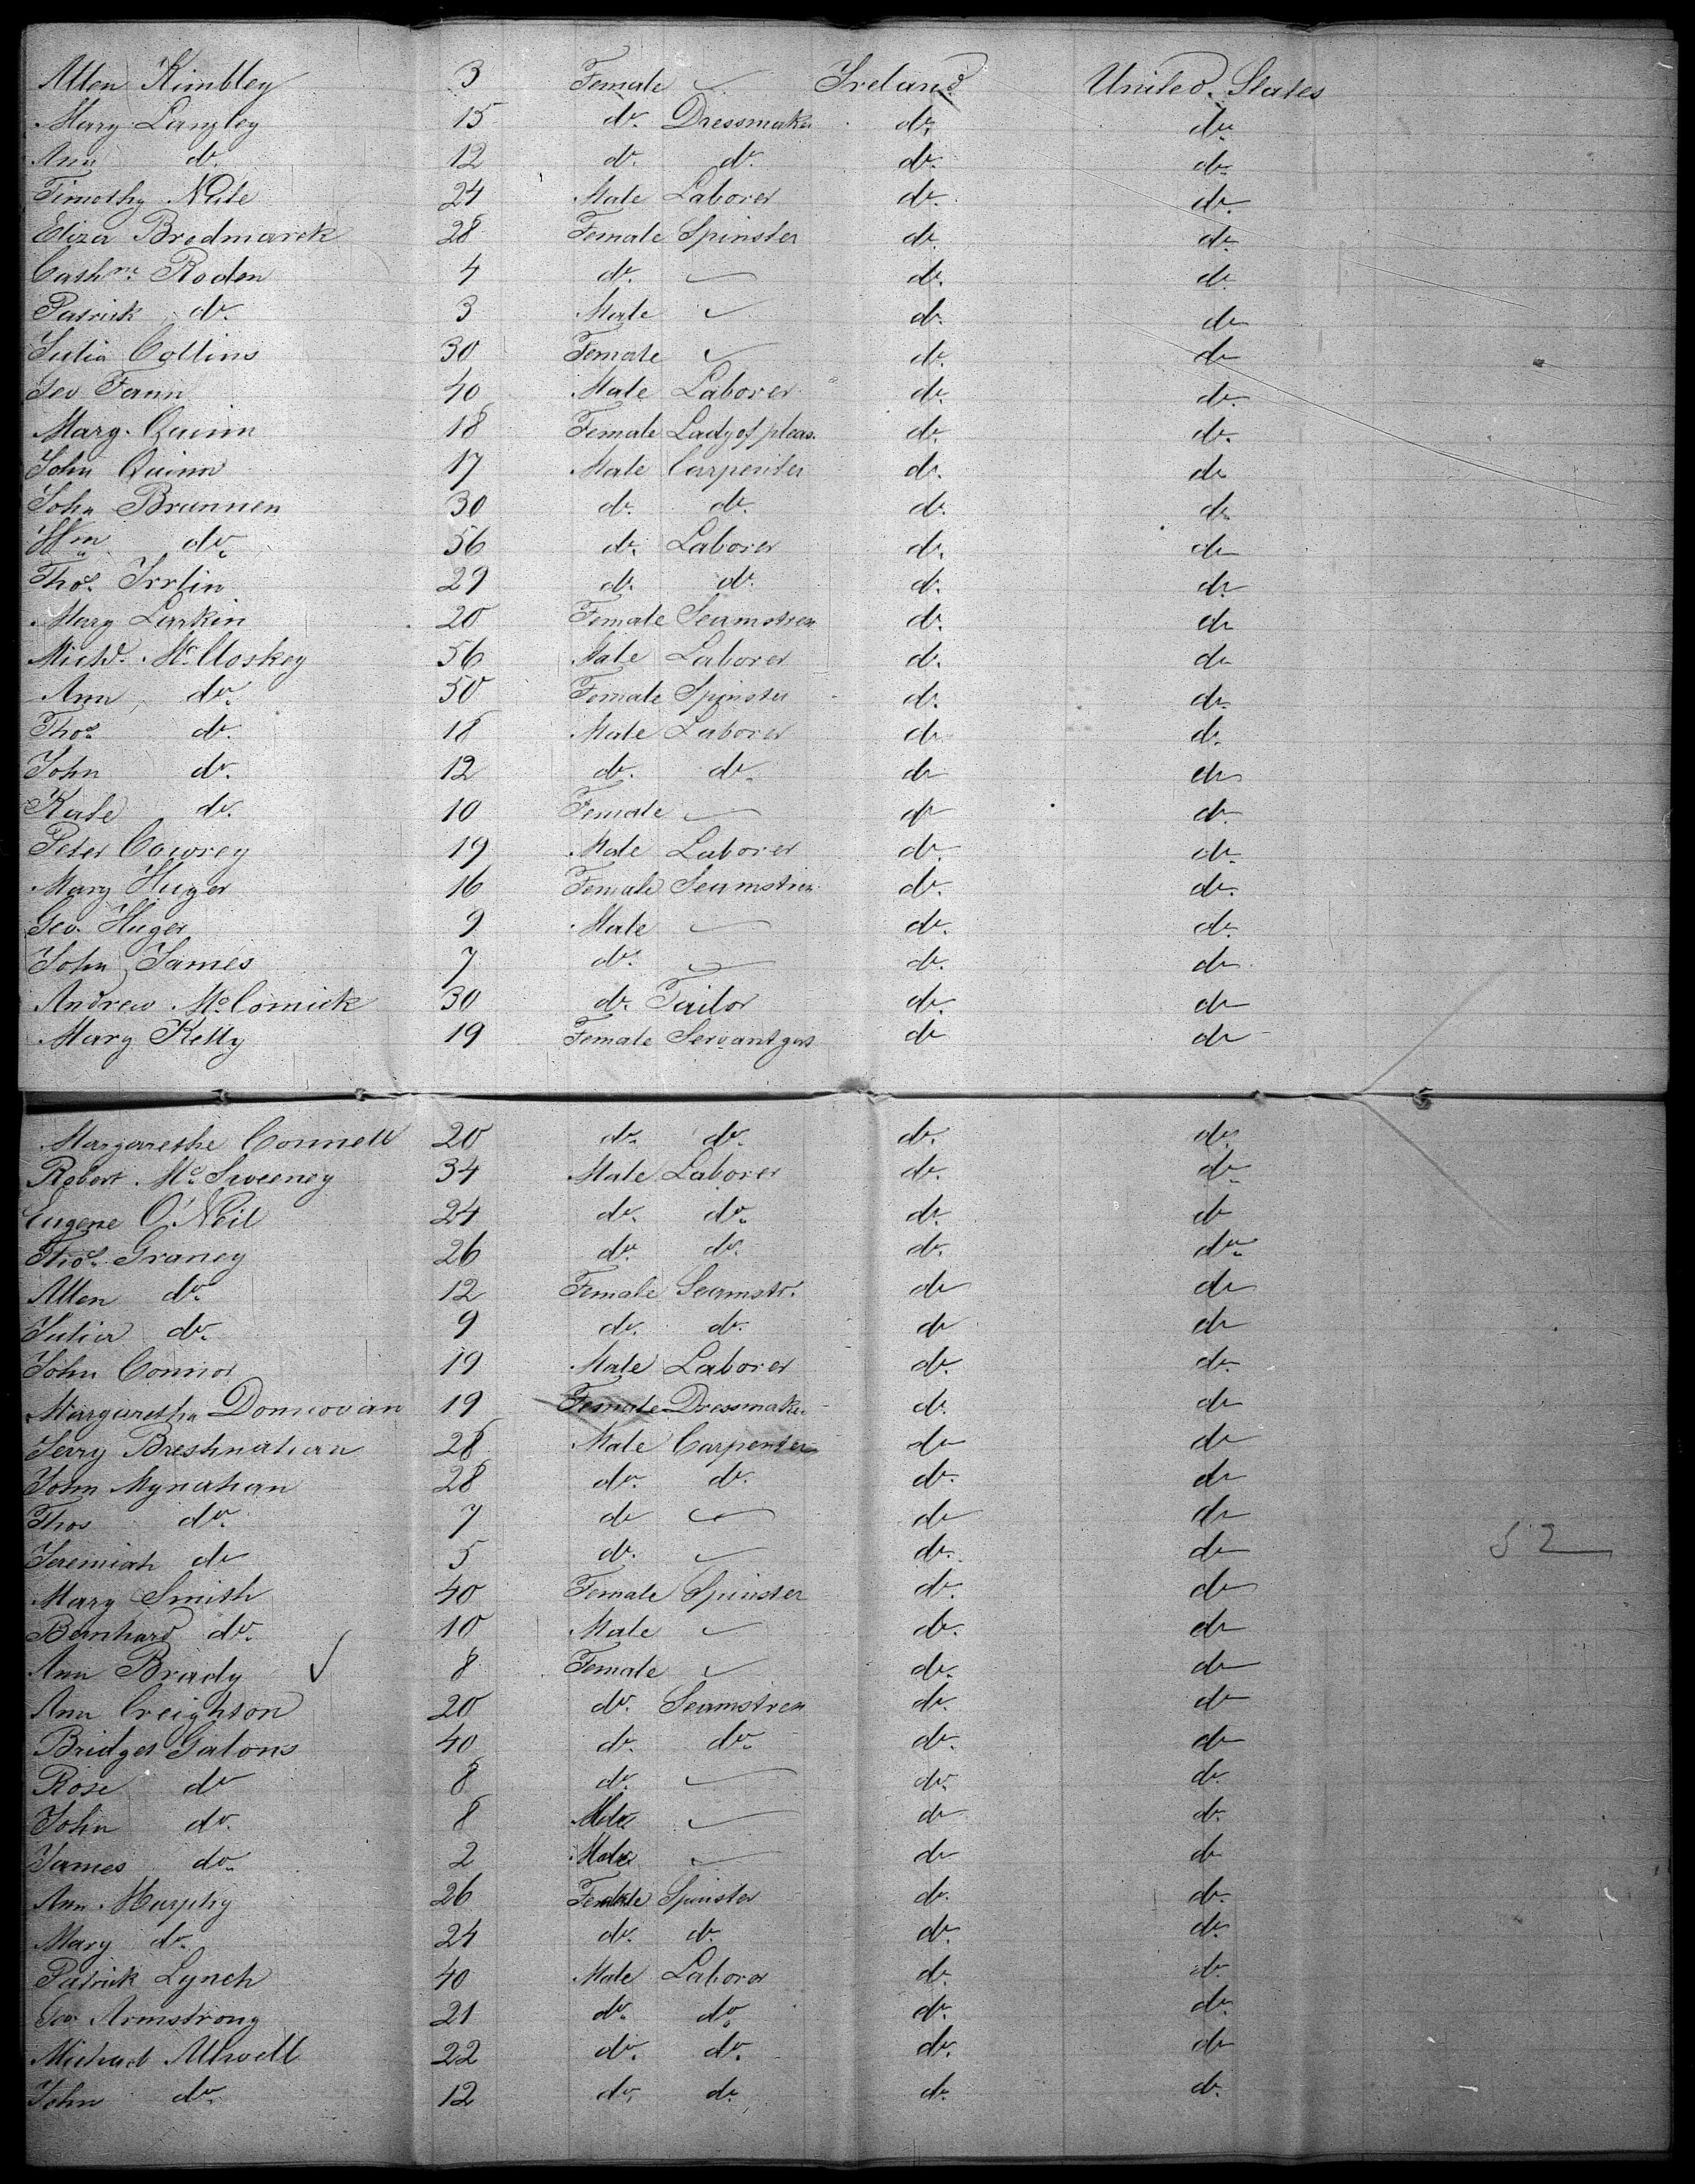 Allen Kimbley 3 Female Ireland United States
Mary Langley 15 do. Dressmaker do. do.
Ann do. 12 do. do. do. do.
Timothy Neile 24 Male Laborer do. do.
Eliza Bredmarck 28 Female Spinster do. do.
Cathne. Roden 4 do. do. do.
Patrick do. 3 Male do. do.
Julia Collins 30 Female do. do.
Geo Fann 40 Male Laborer do. do.
Marg. Quinn 18 Female Lady of pleas. do. do.
John Quinn 17 Male Carpenter do. do.
John Brannen 30 do. do. do. do.
Wm do. 56 do. Laborer do. do.
Thos. Irrlin 29 do. do. do. do.
Mary Larkin 20 Female Seamstress do. do.
Michl. McCloskey 56 Male Laborer do. do.
Ann do. 50 Female Spinster do. do.
Thos. do. 18 Male Laborer do. do.
John do. 12 do. do. do do
Kate do. 10 Female do do.
Peter Cowrey 19 Male Laborer do. do.
Mary Huger 16 Female Seamstress do. do.
Geo. Huger 9 Male do. do.
John James 7 do. do. do.
Andrew McComick 30 do. Tailor do. do
Mary Kelly 19 Female Servant do do
Margarethe Connell 20 do. do. do. do.
Robert McSweeney 34 Male Laborer do. do.
Eugene O'Neil 24 do. do. do. do
Thos. Graney 26 do. do. do. do.
Allen do. 12 Female Seamstr. do do
Julia do. 9 do. do. do do
John Connor 19 Male Laborer do. do.
Margaretha Donnovan 19 Female Dressmaker do. do
Jerry Breshnahan 28 Male Carpenter do do
John Mynahan 28 do. do. do. do
Thos do. 7 do do do
Jeremiah do 5 do. do. do 52
Mary Smith 40 Female Spinster do. do
Bernhard do. 10 Male do. do
Ann Brady ✓ 8 Female do. do
Ann Creighton 20 do. Seamstress do. do
Bridget Galons 40 do. do. do. do
Rose do 8 do. do. do.
John do. 8 Male do do.
James do. 2 Male do do
Ann Murphy 26 Female Spinster do. do.
Mary do. 24 do. do. do. do.
Patrick Lynch 40 Male Laborer do. do.
Geo. Armstrong 21 do. do. do. do.
Michael Allwell 22 do. do. do. do
John do. 12 do. do. do. do.